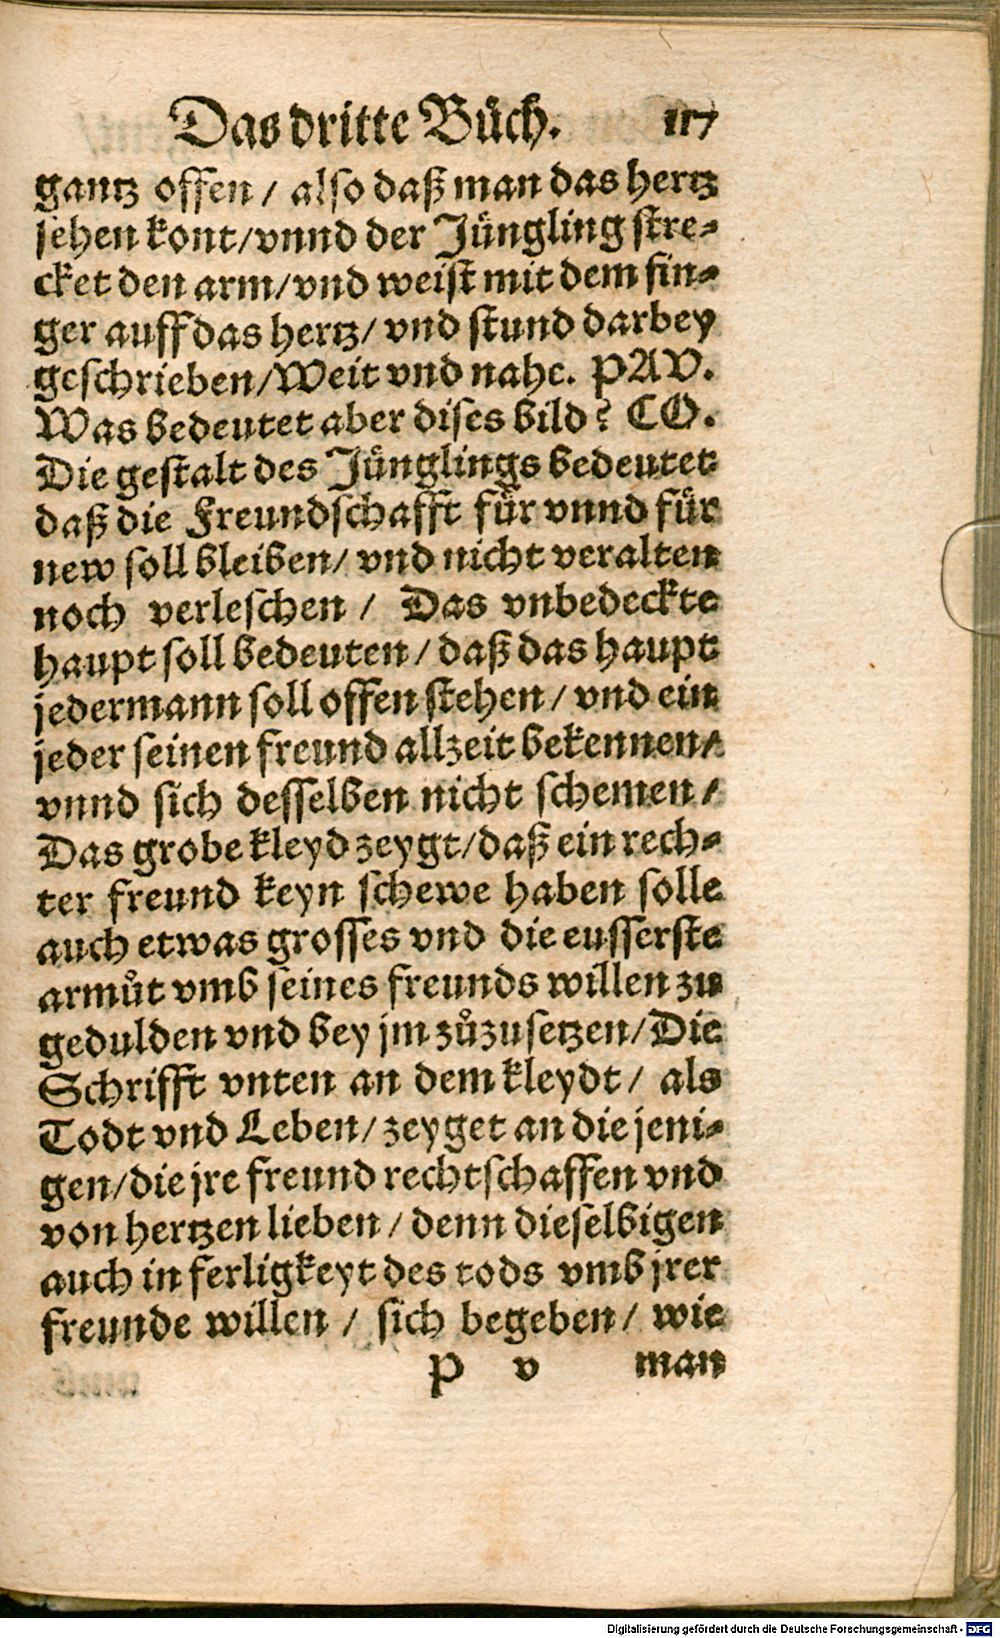 Das dritte Bůch. 117
gantz offen / also daß man das hertz
sehen kont/vnnd der Jüngling stre-
cket den arm/vnd weist mit dem fin-
ger auff das hertz/ vnd stund darbey
geschrieben/Weit vnd nahe. PAV.
Was bedeutet aber dises bild? CO.
Die gestalt des Jünglings bedeutet
daß die Freundschafft für vnnd für
new soll bleiben/ vnd nicht veralten
noch verleschen / Das vnbedeckte
haupt soll bedeuten/ daß das haupt
jedermann soll offen stehen/ vnd ein
jeder seinen freund allzeit bekennen/
vnnd sich desselben nicht schemen/
Das grobe kleyd zeygt/daß ein rech-
ter freund keyn schewe haben solle
auch etwas grosses vnd die eusserste
armůt vmb seines freunds willen zu
gedulden vnd bey jm zůzusetzen/Die
Schrifft vnten an dem kleydt / als
Todt vnd Leben/zeyget an die jeni-
gen/die jre freund rechtschaffen vnd
von hertzen lieben / denn dieselbigen
auch in ferligkeyt des tods vmb jrer
freunde willen / sich begeben/ wie
P v man
Digitalisierung gefördert durch die Deutsche Forschungsgemeinschaft - DFG